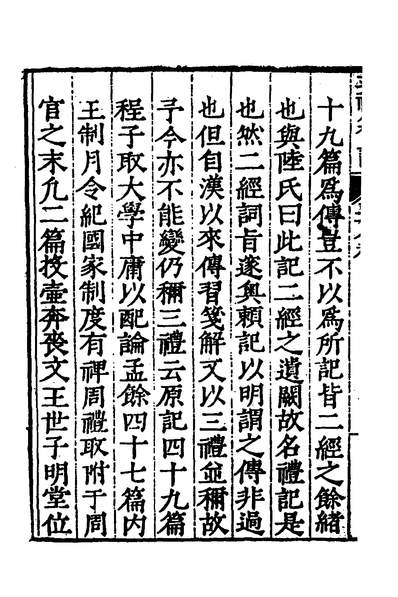 十九篇爲傳豈不以爲所記皆二經之餘緒
也與陸氏曰此記二經之遺闕故名禮記是
也然二經詞旨邃奧頼記以明謂之傳非過
也但自漢以來傳習箋解又以三禮並稱故
予今亦不能變仍稱三禮云原記四十九篇
程子取大學中庸以配論孟餘四十七篇内
王制月令紀國家制度有裨周禮取附于周
官之末凢二篇投壷奔喪文王世子明堂位